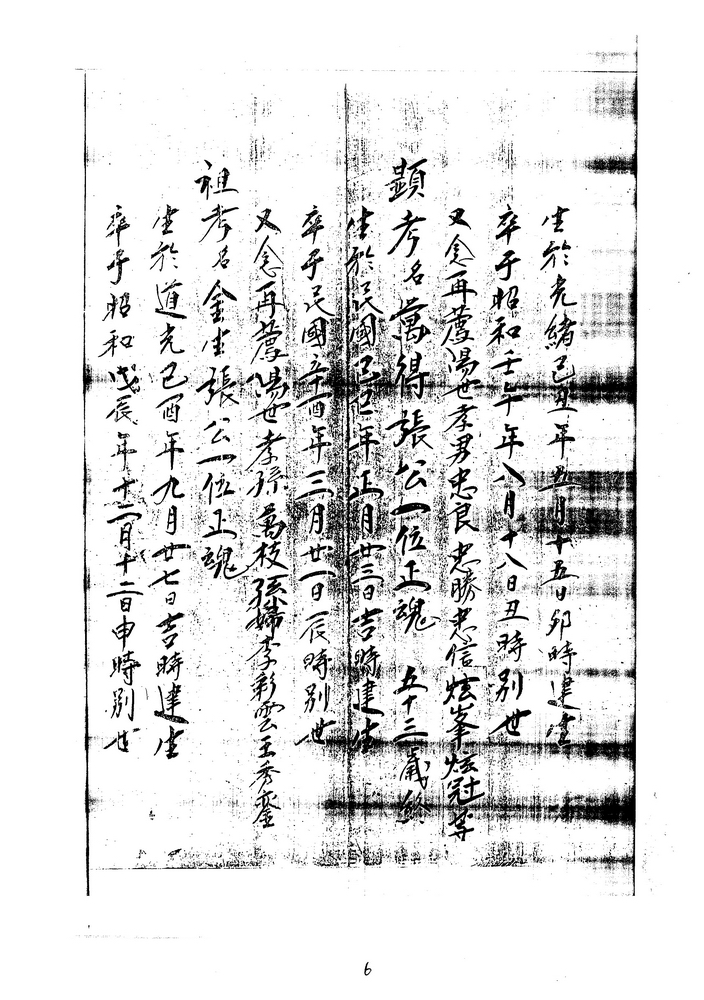 生於光緒己丑年五月十五日卯時建生
卒于昭和壬午年八月十八日丑時別世
又念再薦陽世孝男忠良忠勝忠信炫峯炫冠等
顯考名萬得張公一位正魂 五十三歲終
生於民國己巳年正月廿三日吉時建生
卒于民國辛酉年三月廿一日辰時別世
又念再薦陽世孝孫萬枝孫婦李彩雲王秀鑾
祖考名金生張公一位正魂
生於道光己酉年九月廿七日吉時建生
卒于昭和戊辰年十二月十二日申時別世
6